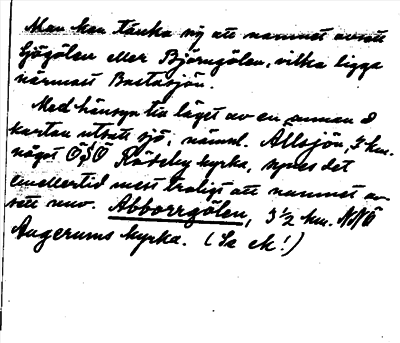 Man kan tänka sig att namnet avsett
Sjögölen eller Björngölen, vilka ligga
närmast Bastasjön.
Med hänsyn till läget av en annan å
kartan utsatt sjö, nämnl. Allsjön, 7 km.
något ÖSÖ Rödeby kyrka, synes det
emellertid mest troligt att namnet av-
sett nuv. Abborrgölen, 3 1/2 km. NNÖ
Augerums kyrka. (Se ek!)